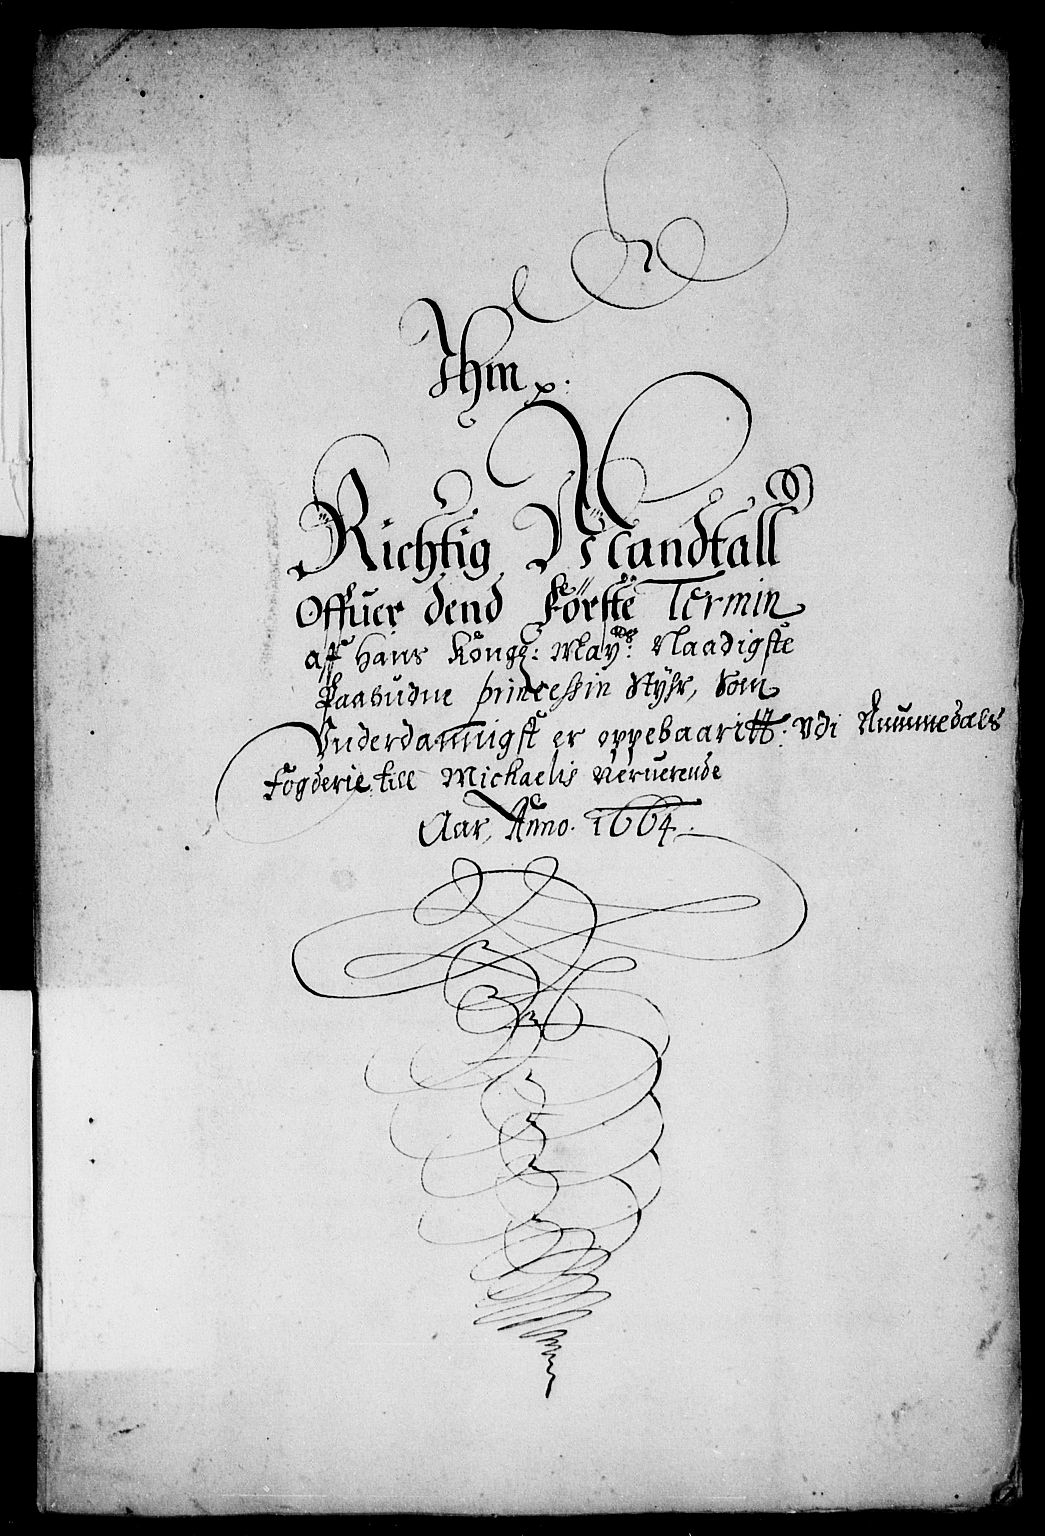 Ihm
Richtig Mandtall
Offuer dend Förste Termin
aff Hans Kongl: Mayts: Naadigste
Paabudne princessin Styhr, Som
Vnderdannigst er oppebaaritt. Vdi Nummedals
Fogderie till Michaelis Nerverende
Aar, Anno. 1664.